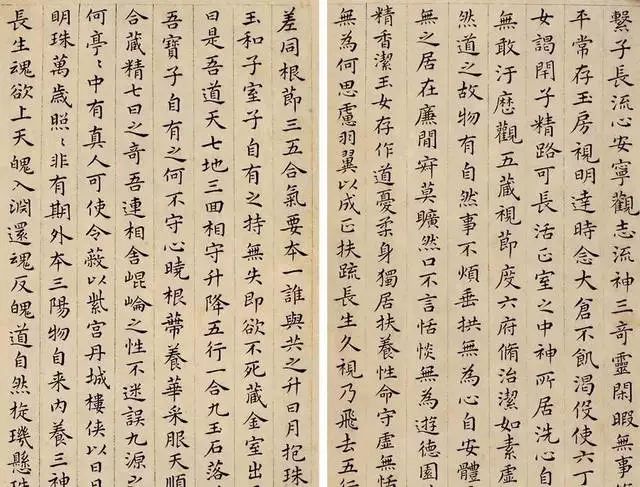 繫子長流心安寧觀志流神三奇靈閑暇無事
平常存玉房視明達時念大倉不飢渴役使六丁
女謁閉子精路可長活正室之中神所居洗心自
無敢汙歷觀五藏視節度六府脩治潔如素虛
然道之故物有自然事不煩垂拱無為心自安體
無之居在廉間寂莫曠然口不言恬惔無為遊德園
精香潔玉女存作道憂柔身獨居扶養性命守虛無恬
無為何思慮羽翼以成正扶疏長生久視乃飛去五行
差同根節三五合氣要本一誰與共之升日月抱珠
玉和子室子自有之持無失即欲不死藏金室出
曰是吾道天七地三回相守升降五行一合九玉石落
吾寶子自有之何不守心曉根蒂養華采服天順
合藏精七日之奇吾連相舍崐崘之性不迷誤九源之
何亭〻中有真人可使令蔽以紫宮丹城樓俠以日
明珠萬歲照〻非有期外本三陽物自来内養三神
長生魂欲上天魄入淵還魂反魄道自然旋璣懸珠